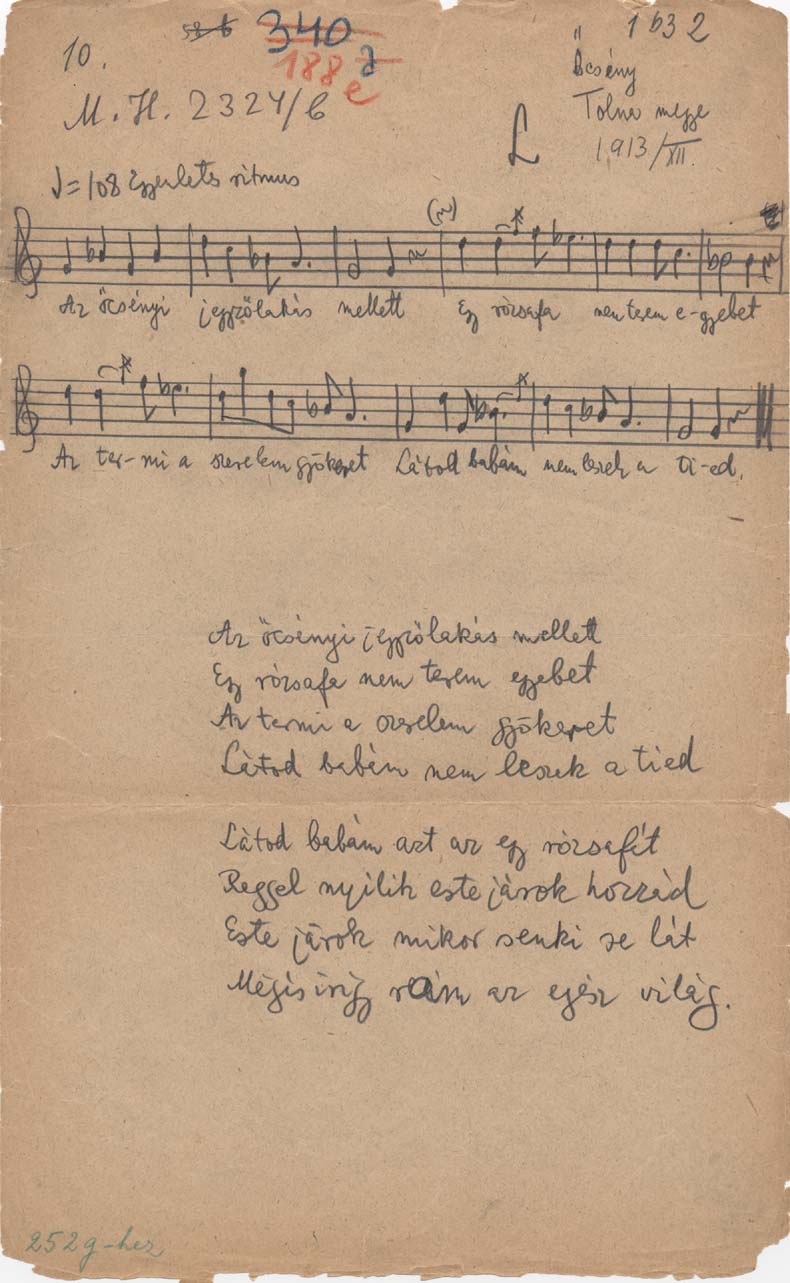 10.
340
188 e
1632
Őcsény
Tolna megye
1913/XII.
M.H. 2324/b
♩=108 Egyenletes ritmus
Az őcsényi jegyzőlakás mellett Egy rózsafa nem terem e-gyebet
Az ter-mi a szerelem gyökeret Látod babám nem leszek a ti-ed.
Az őcsényi jegyzőlakás mellett
Egy rózsafa nem terem egyebet
Az termi a szerelem gyökeret
Látod babám nem leszek a tied
Látod babám azt az egy rózsafát
Reggel nyílik este járok hozzád
Este járok mikor senki se lát
Mégis irígy reám az egész világ.
252g-hez